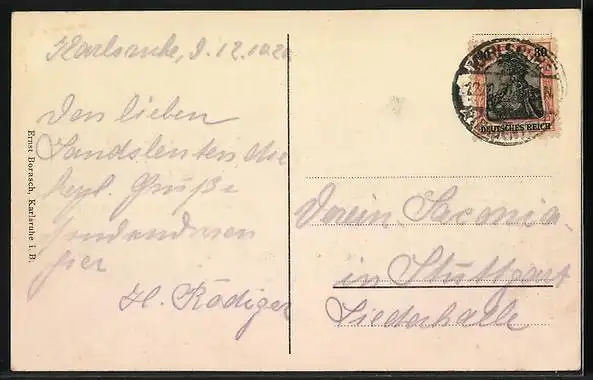 Karlsruhe, d. 12.10.20
Den lieben
Landsleuten die
herzl. Grüße
hier
H. Rödiger
Ernst Borasch, Karlsruhe i. B.
80
DEUTSCHES REICH
Verein Saxonia
in Stuttgart
Liederhalle